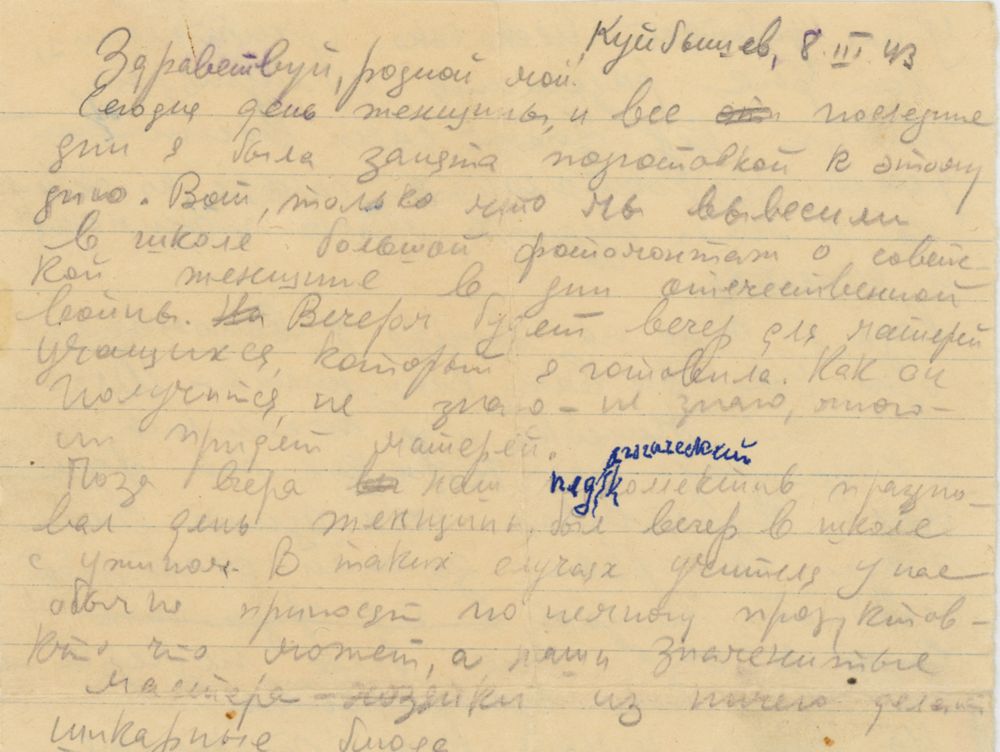 Куйбышев, 8.III.43
Здравствуй, родной мой.
Сегодня день женщины, и все последние
дни я была занята подготовкой к этому
дню. Вот, только что мы вывесили
в школе большой фотомонтаж о совет-
кой женщине в дни отечественной
войны. Вечером будет вечер для матерей
учащихся, который я готовила. Как он
получится, не знаю - не знаю, много-
ли придет матерей.
Поза вчера наш педагогический коллектив праздно-
вал день женщины. был вечер в школе
с ужином. В таких случаях учителя у нас
обычно приносят по немногу продуктов -
кто что может, а наши знаменитые
мастера - хозяйки из ничего делают
шикарные блюда